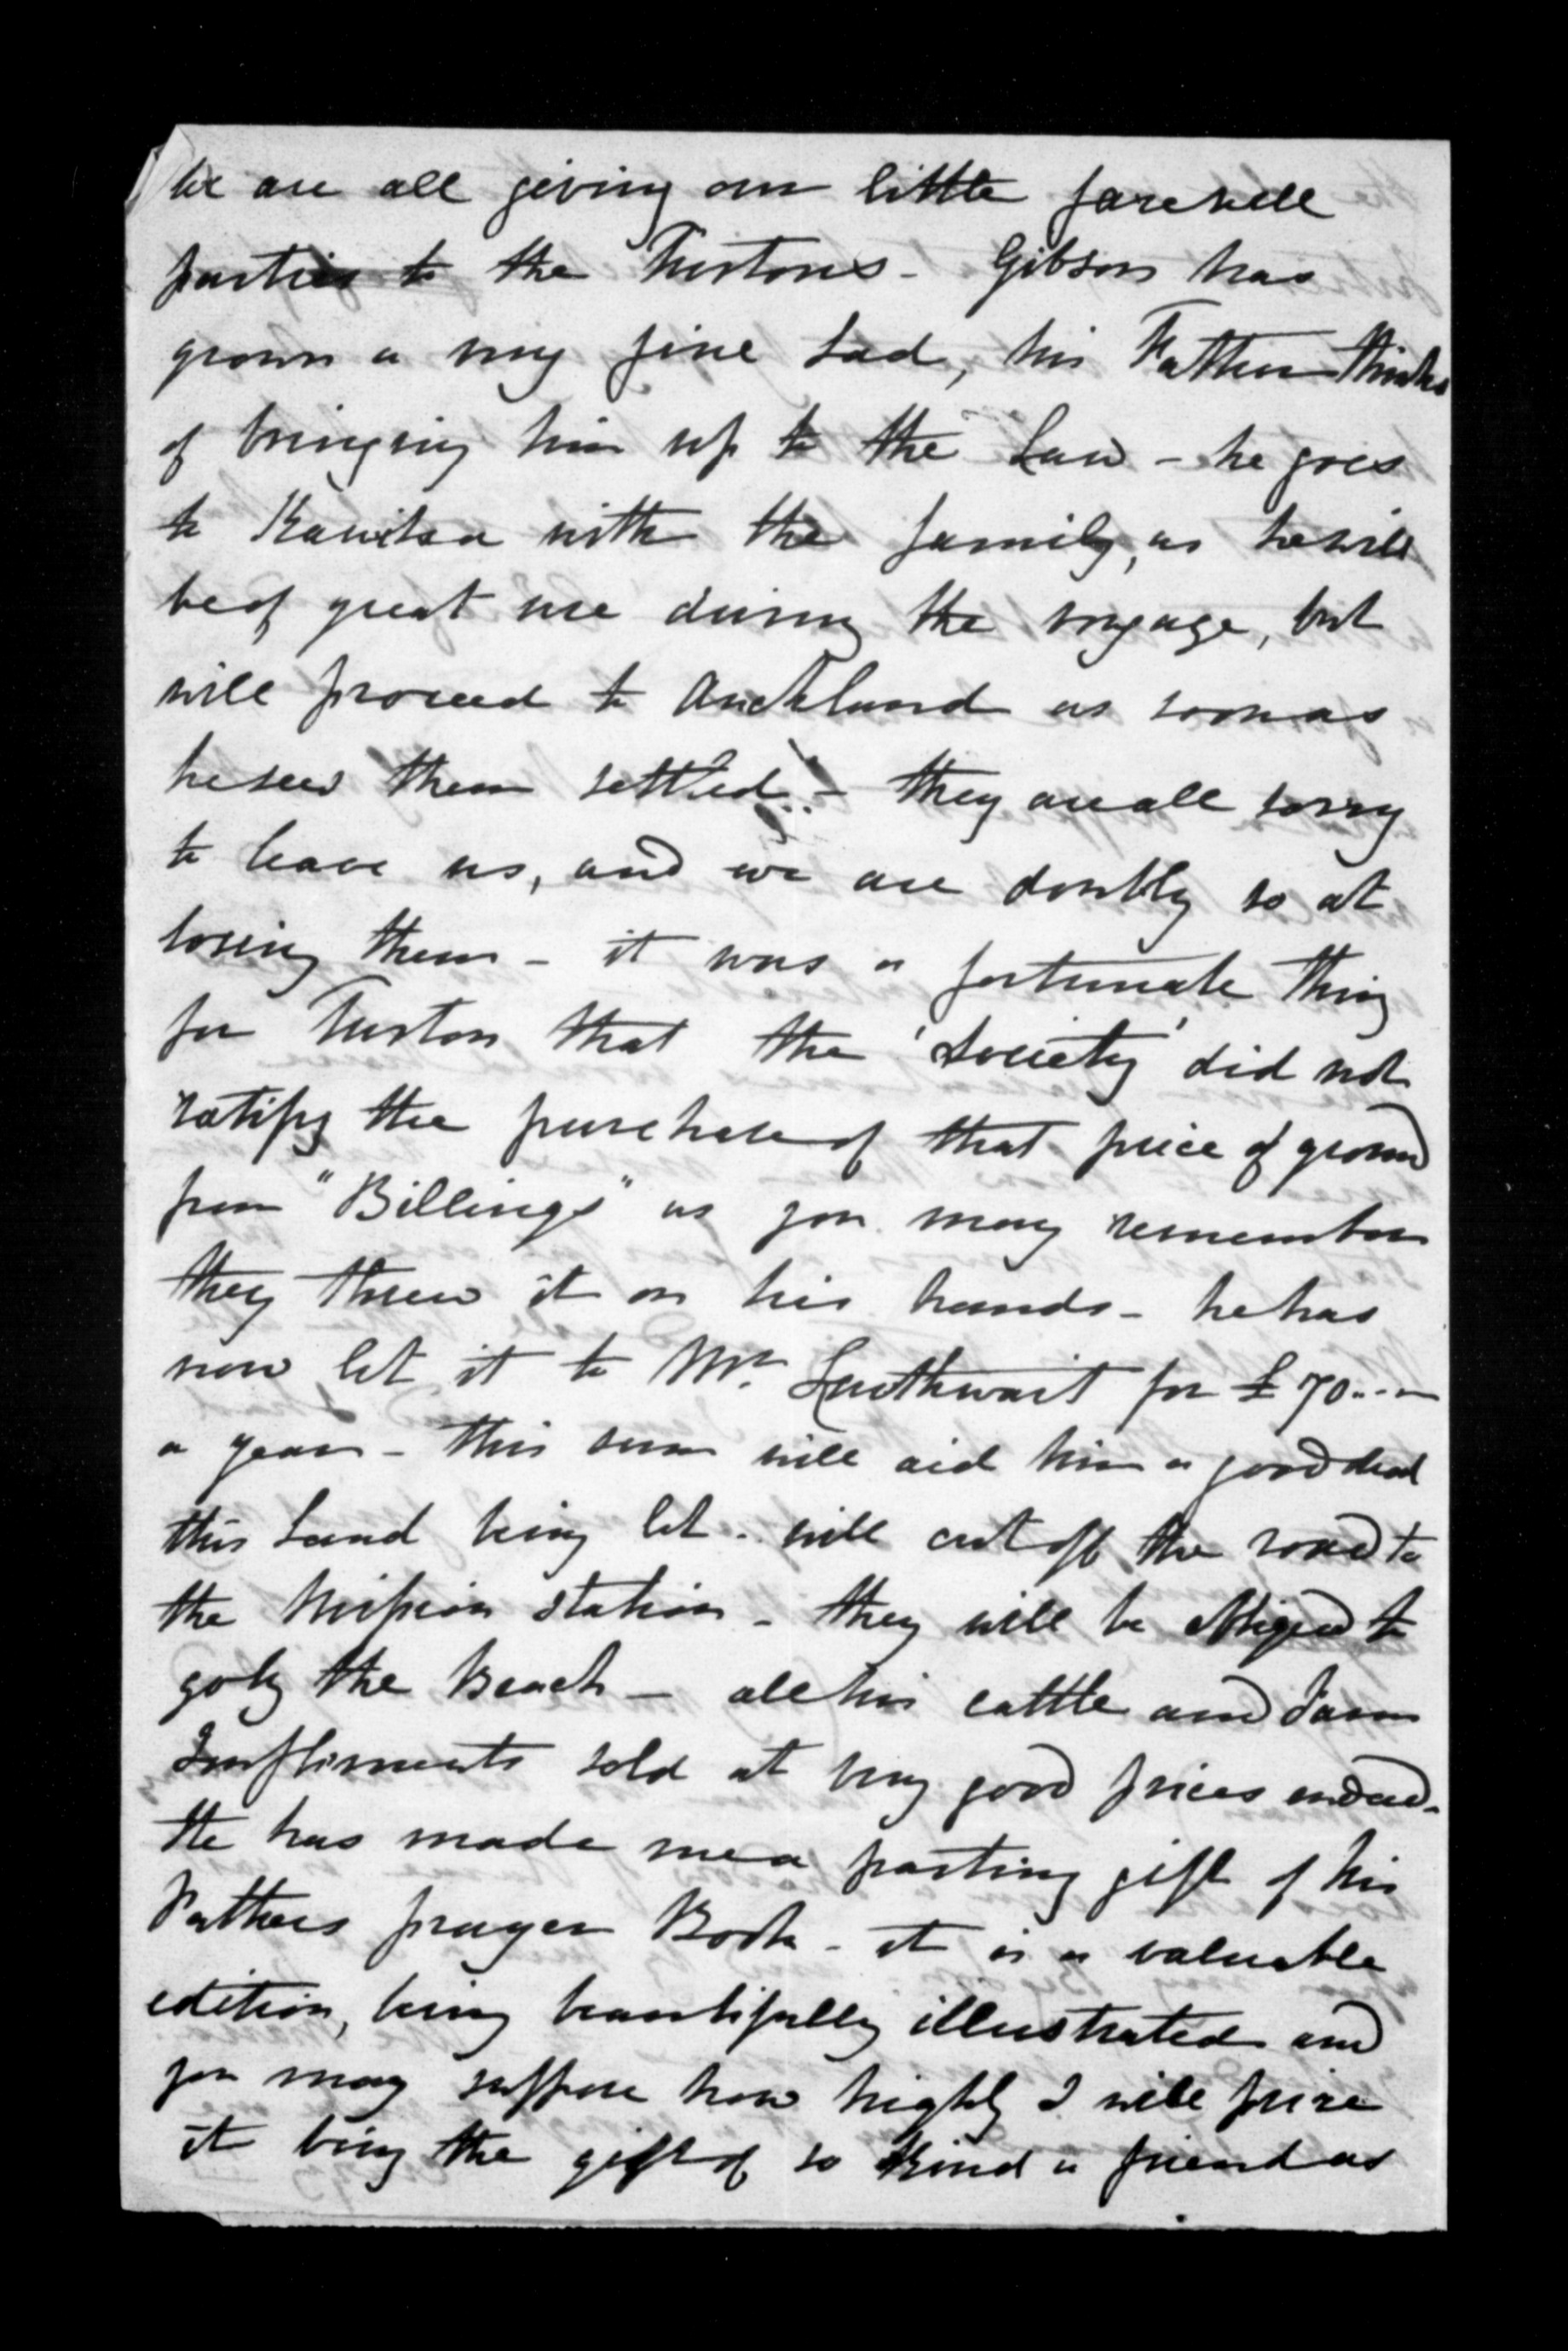 We are all giving our little farewell
parties to the Turtons - Gibson has
grown a very fine Lad, his Father thinks
of bringing him up to the Law - he goes
to Kawhia with the family, as he will
be of great use during the voyage, but
will proceed to Auckland as soon as
he sees them settled - they are all sorry
to leave us, and we are doubly so at
losing them - it was a fortunate thing
for Turton that the 'Society' did not
ratify the purchase of that piece of ground
from "Billings" as you may remember
they threw it on his hands - he has
now let it to Mr. Louthwait for £70..-..-
a year - this sum will aid him a good deal
this Land being let - will cut off the road to
the Mission station - they will be obliged to
go by the Beach - all his cattle and Farm
Impliments sold at very good prices indeed -
He has made me a parting gift of his
Fathers prayer Book - it is a valuable
edition, being beautifully illustrated and
you may suppose how highly I will prize
it being the gift of so kind a friend as